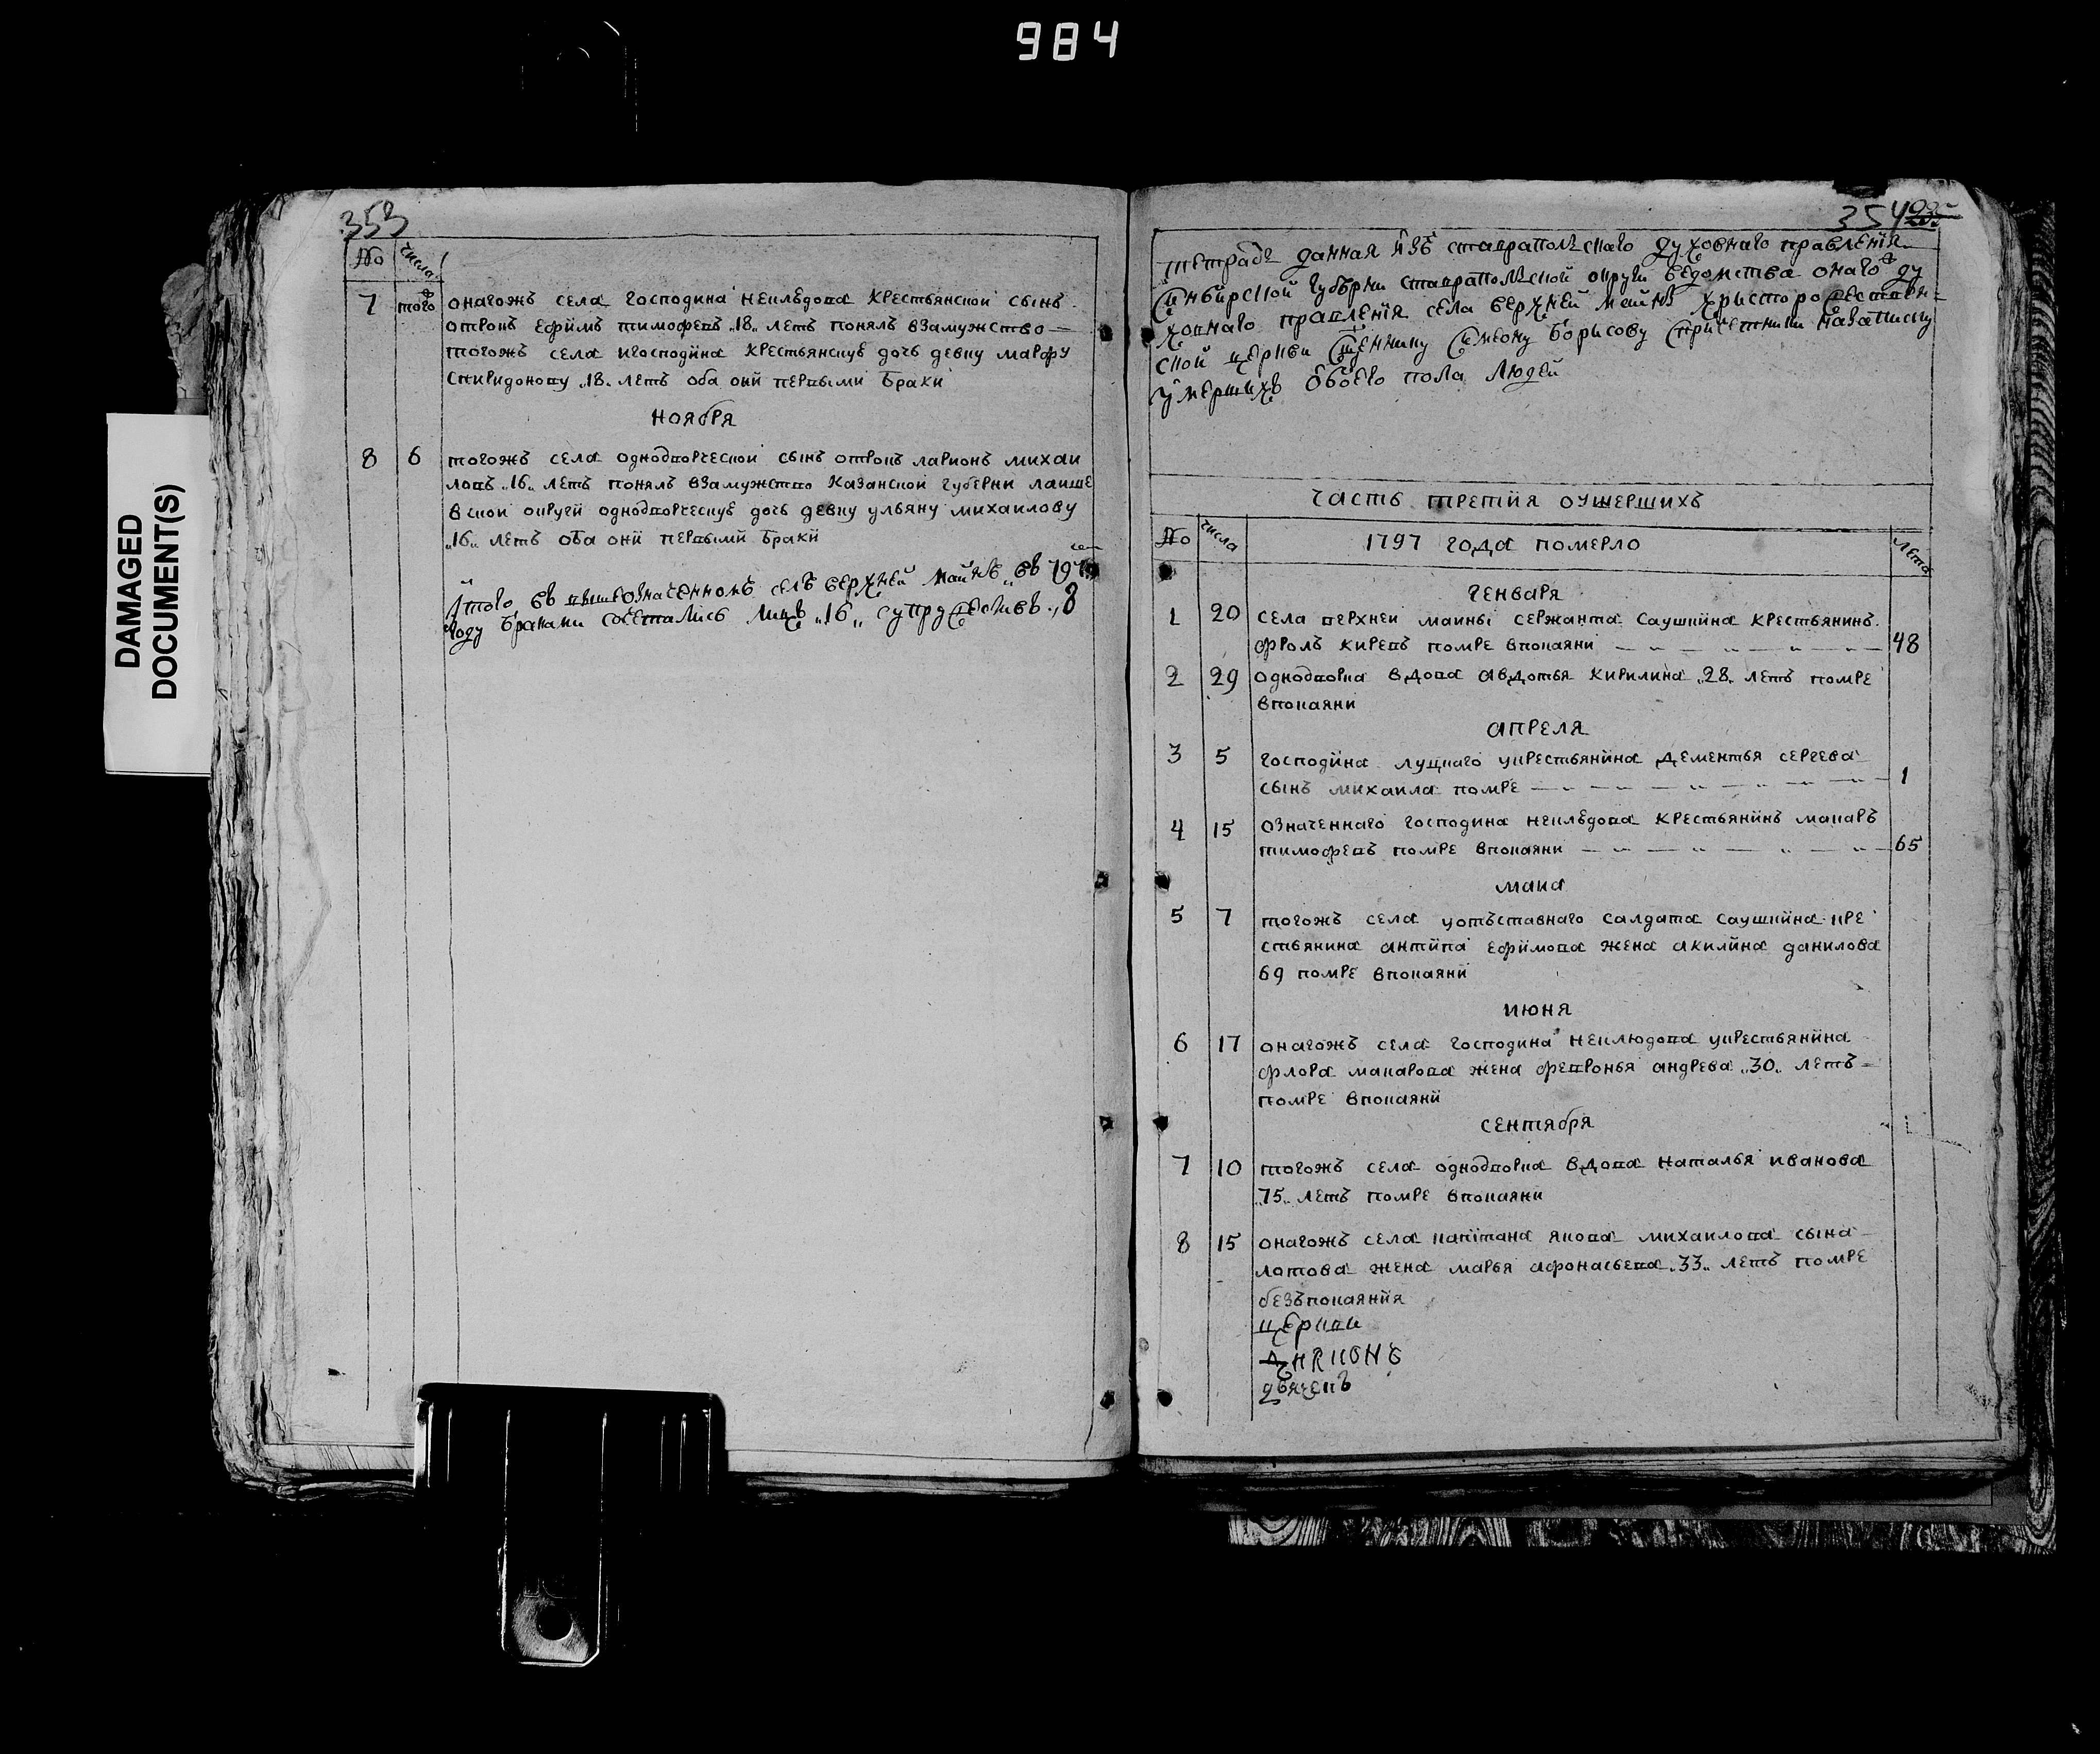 984
DAMAGED
DOCUMENT(S)
353
№ числа
7 тогѡ онагожъ села господина неклѣдова крестьянской сынъ
отрокъ ефимъ тимофевъ „18„ летъ понялъ взамужство
тогожъ села игосподина крестьянскуѣ дочь девку марфу
спиридонову „18„ летъ оба они первыми браки
ноября
8 6 тогожъ села однодворческои сынъ отрокъ ларионъ михаи
ловъ „16„ летъ понялъ взамужство казанской губерни лаише
вской округи однодворческуѣ дочь девку ульяну михаилову
„16„ летъ оба они первыми браки
Итого въ вышеозначенномъ селѣ верхней майнѣ въ 797
году браками сочетались лицъ „16„ супружествъ „8
354
тетрадь данная изъ ставропольскаго духовнаго правления
синбирской губерни ставропольской округи ведомства онаго ду
ховнаго правления села верхней майны христорождествен=
ской церкви сщенику симеону борисову спричетники назаписку
умершихъ обоего пола людей
часть третия оумершихъ
№ числа 1797 года померло лета
генваря
1 20 села верхнеи маины сержанта саушкина крестьянинъ
фролъ киревъ помре впокаяни 48
2 29 однодворка вдова авдотья кирилина „28„ летъ помре
впокаяни
апреля
3 5 господина луцкаго укрестьянина дементья сергева
сынъ михаила помре 1
4 15 означеннаго господина неклѣдова крестьянинъ макаръ
тимофевъ помре впокаяни 65
маиа
5 7 тогожъ села уотъставнаго салдата саушкина кре
стьянина антипа ефимова жена акилина данилова
69 помре впокаяни
июня
6 17 онагожъ села господина неклюдова укрестьянина
флора макарова жена февронья андрева „30„ летъ=
помре впокаяни
сентября
7 10 тогожъ села однодворка вдова наталья иванова
„75„ летъ помре впокаяни
8 15 онагожъ села капитана якова михаилова сына
лотова жена марья афонасьева „33„ летъ помре
безъпокаяния
церкви
дьячекъ